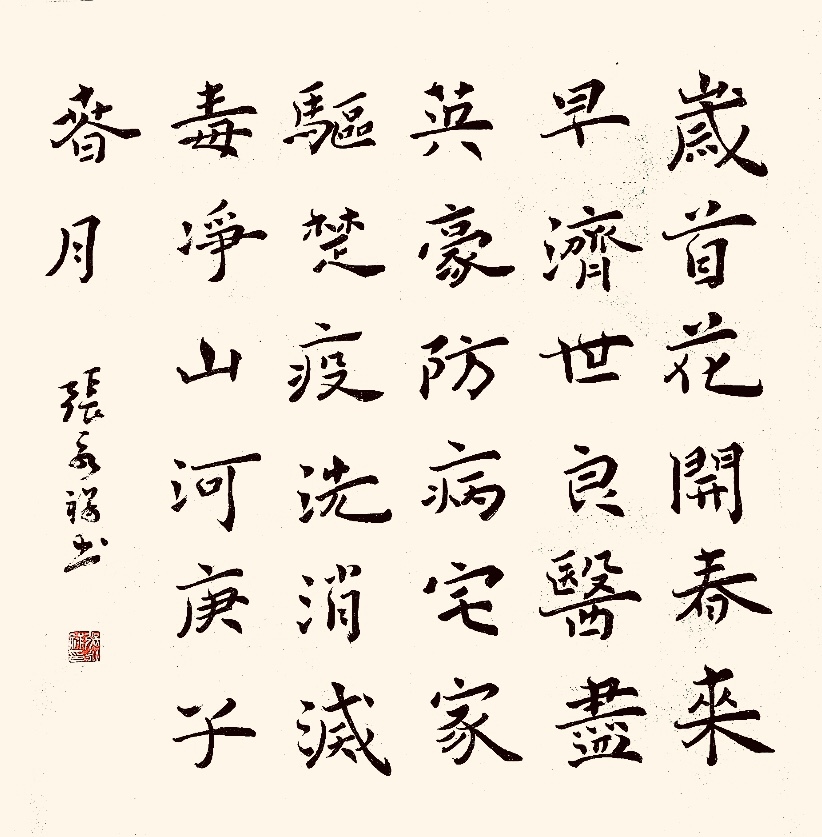 歲首花開春來
早濟世良醫盡
英豪防病宅家
驅楚疫洗消滅
毒凈山河庚子
春月 張永书